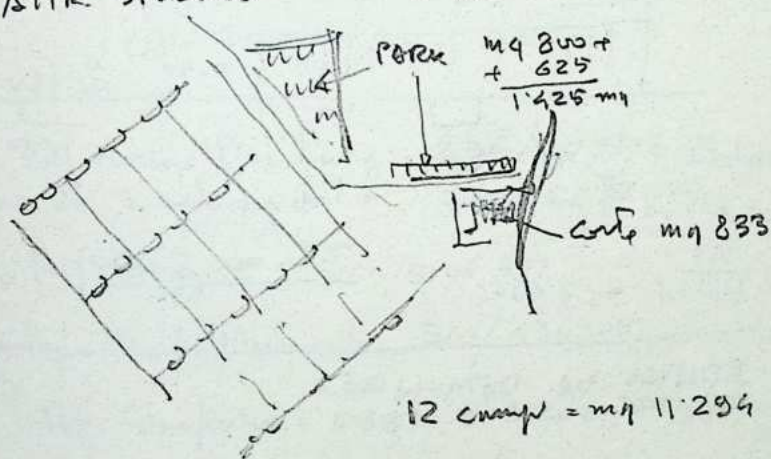 PARK
mq 800 +
+ 625
1'425 mq
corte mq 833
12 campi = mq 11'294